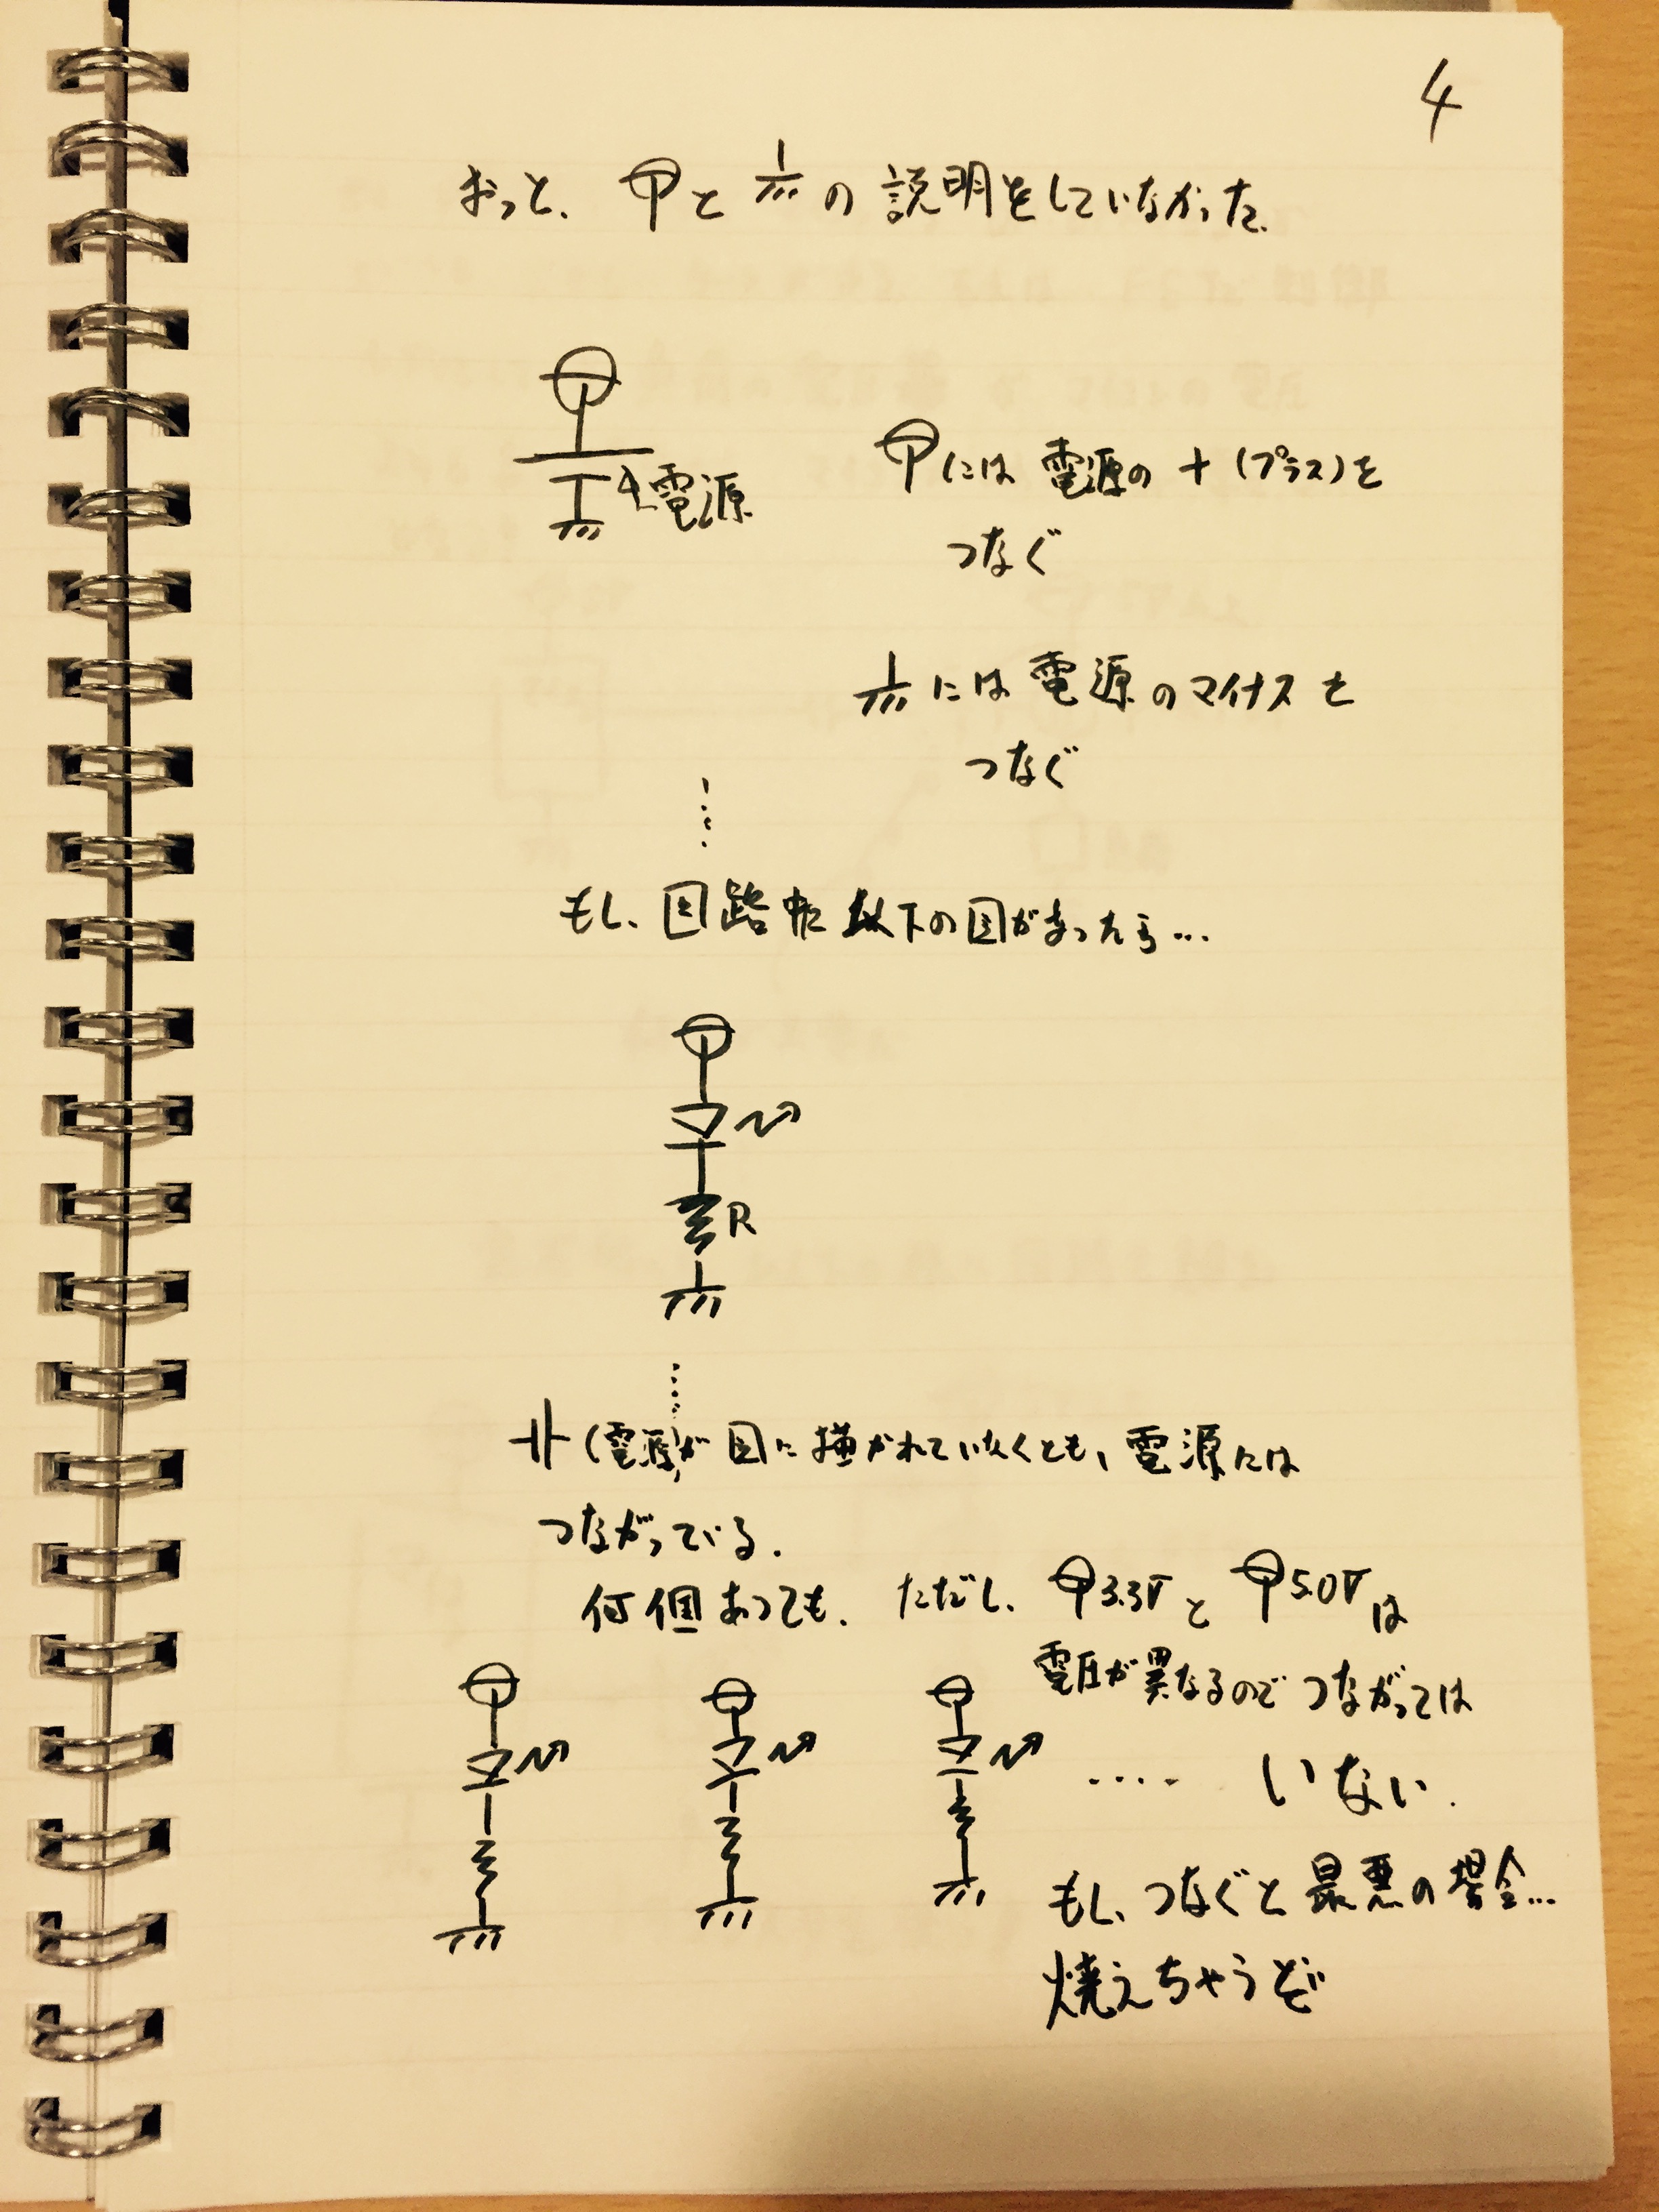 4
おっと、 と の 説明をしていなかった.
電源
には 電源の + (プラス)を
つなぐ
には 電源 のマイナス を
つなぐ
もし、回路 以下の図があったら…
R
(電源)が 図に描かれていなくとも、電源には
つながっている.
何個あっても. ただし、 3.3V と 5.0V は
電圧が異なるので つながっては
…. いない.
もし、つなぐと 最悪の場合…
えちゃうぞ